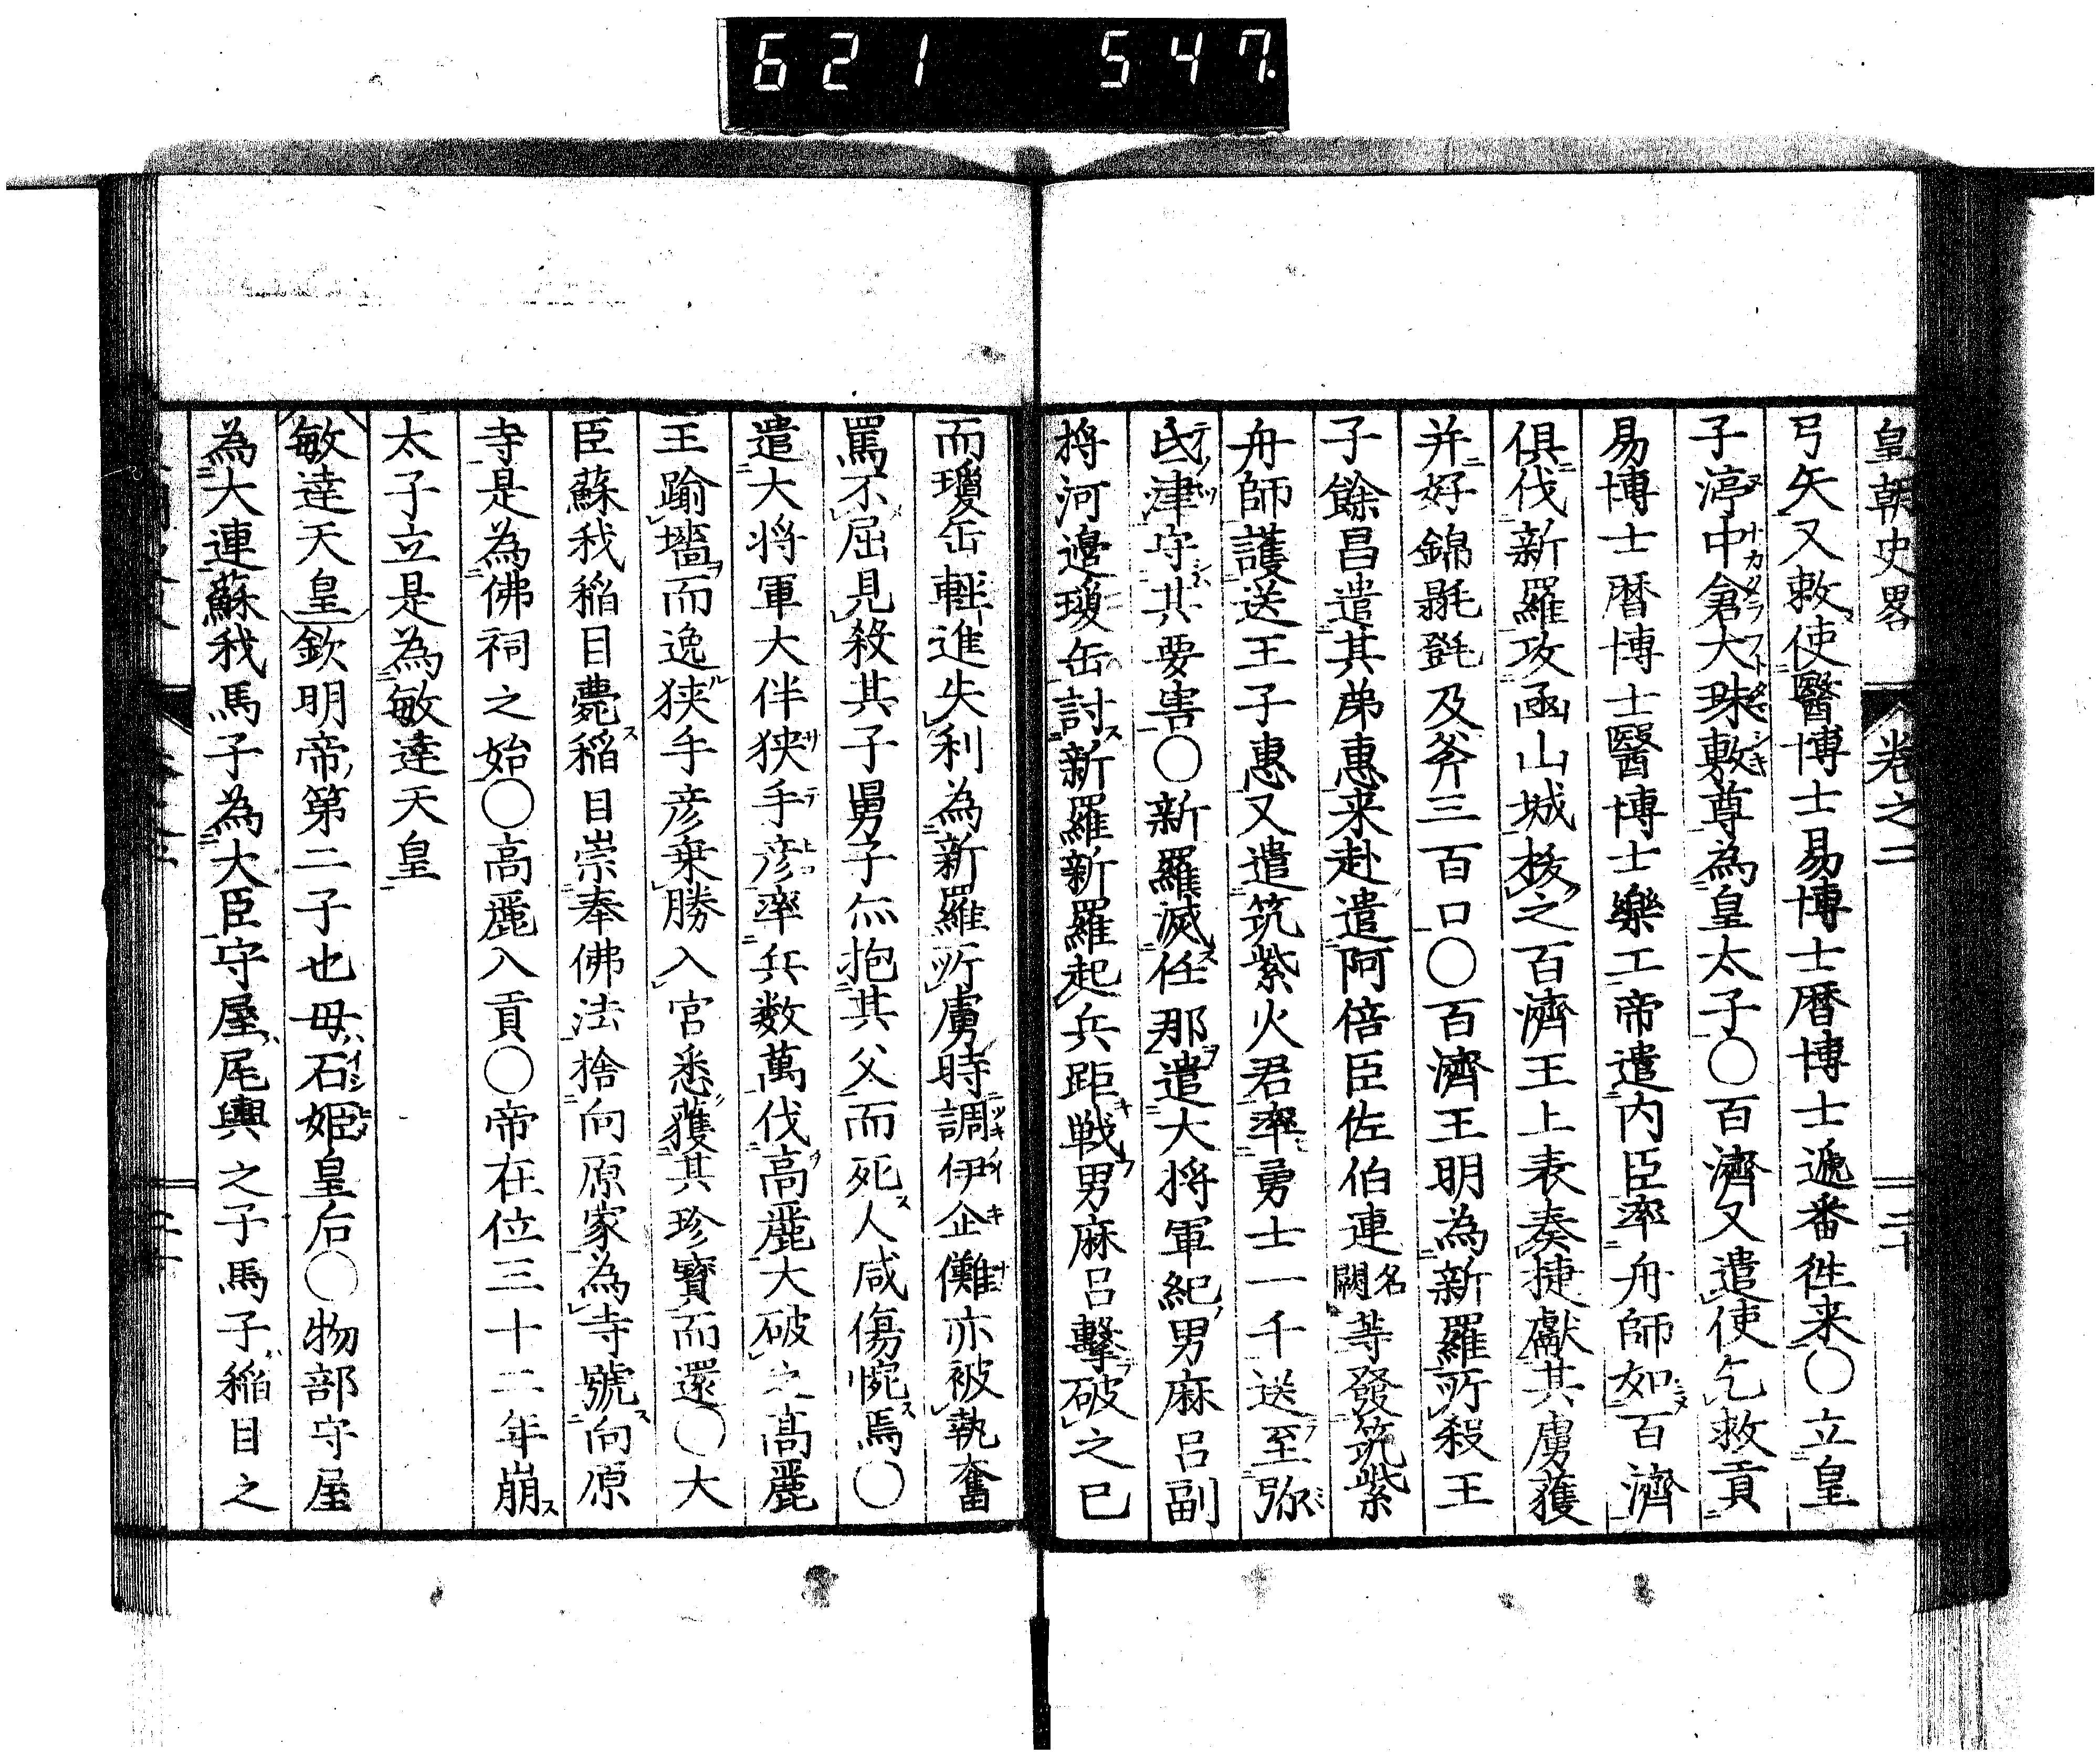 621 547.
皇朝史畧 卷之二 二十
弓矢又敕使醫博士易博士暦博士遞番徃来〇立皇
子渟中倉大珠敷尊為皇太子〇百濟又遣使乞救貢
易博士暦博士醫博士樂工帝遣内臣率舟師如百濟
俱伐新羅攻函山城拔之百濟王上表奏捷獻其虜獲
并好錦毾㲪及斧三百口〇百濟王明為新羅所殺王
子餘昌遣其弟惠来赴遣阿倍臣佐伯連名闕等發筑紫
舟師護送王子惠又遣筑紫火君率勇士一千送至弥
氐津守其要害〇新羅滅任那遣大将軍紀男麻呂副
将河邉瓊缶討新羅新羅起兵距戦男麻呂擊破之已
而瓊缶輕進失利為新羅所虜時調伊企儺亦被執奮
罵不屈見殺其子舅子尓抱其父而死人咸傷惋焉〇
遣大将軍大伴狹手彦率兵数萬伐高麗大破之高麗
王踰墻而逸狹手彦乗勝入官悉獲其珍寳而還〇大
臣蘇我稲目薨稲目崇奉佛法捨向原家為寺號向原
寺是為佛祠之始〇高麗入貢〇帝在位三十二年崩
太子立是為敏達天皇
敏達天皇欽明帝第二子也母石姫皇后〇物部守屋
為大連蘇我馬子為大臣守屋尾輿之子馬子稲目之